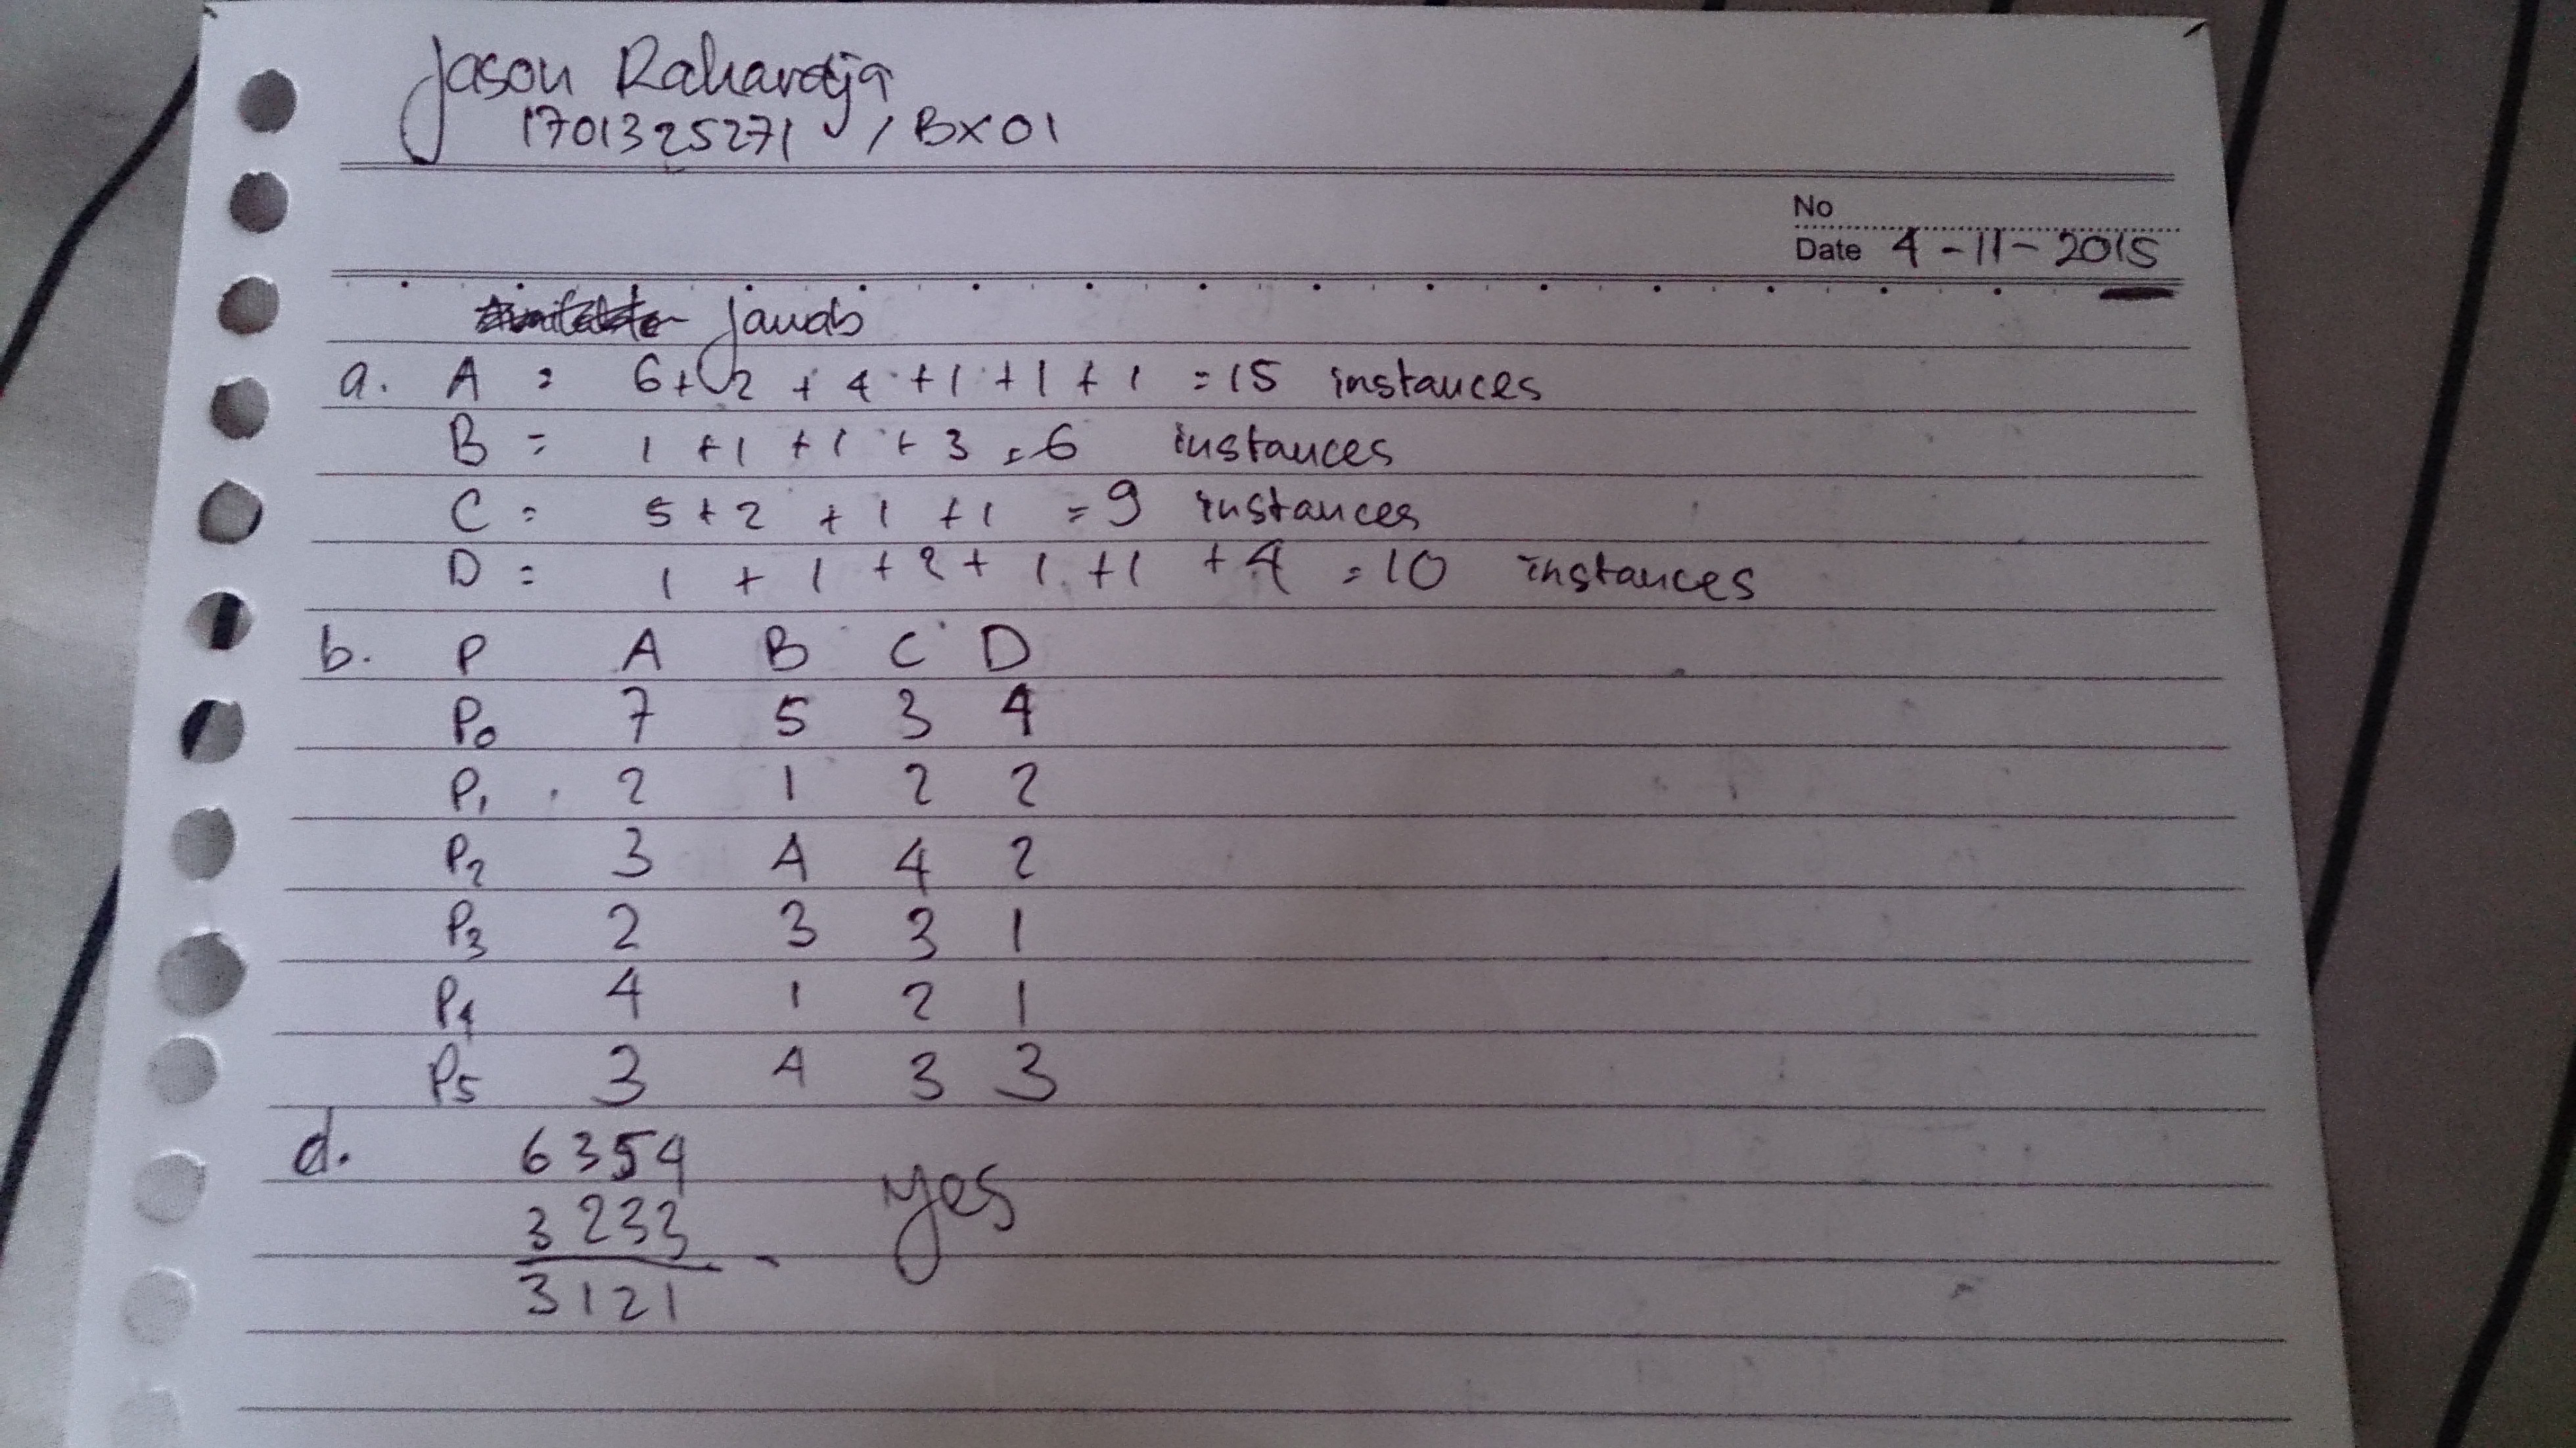 Jason Rahardja
1701325271 / BX01
No
Date 4-11-2015
Jawab
a. A = 6 + 2 + 4 + 1 + 1 + 1 = 15 instances
B = 1 + 1 + 1 + 3 = 6 instances
C = 5 + 2 + 1 + 1 = 9 instances
D = 1 + 1 + 2 + 1 + 1 + 4 = 10 instances
b. P A B C D
P0 7 5 3 4
P1 2 1 2 2
P2 3 4 4 2
P3 2 3 3 1
P4 4 1 2 1
P5 3 4 3 3
d. 6354
3233 yes
3121